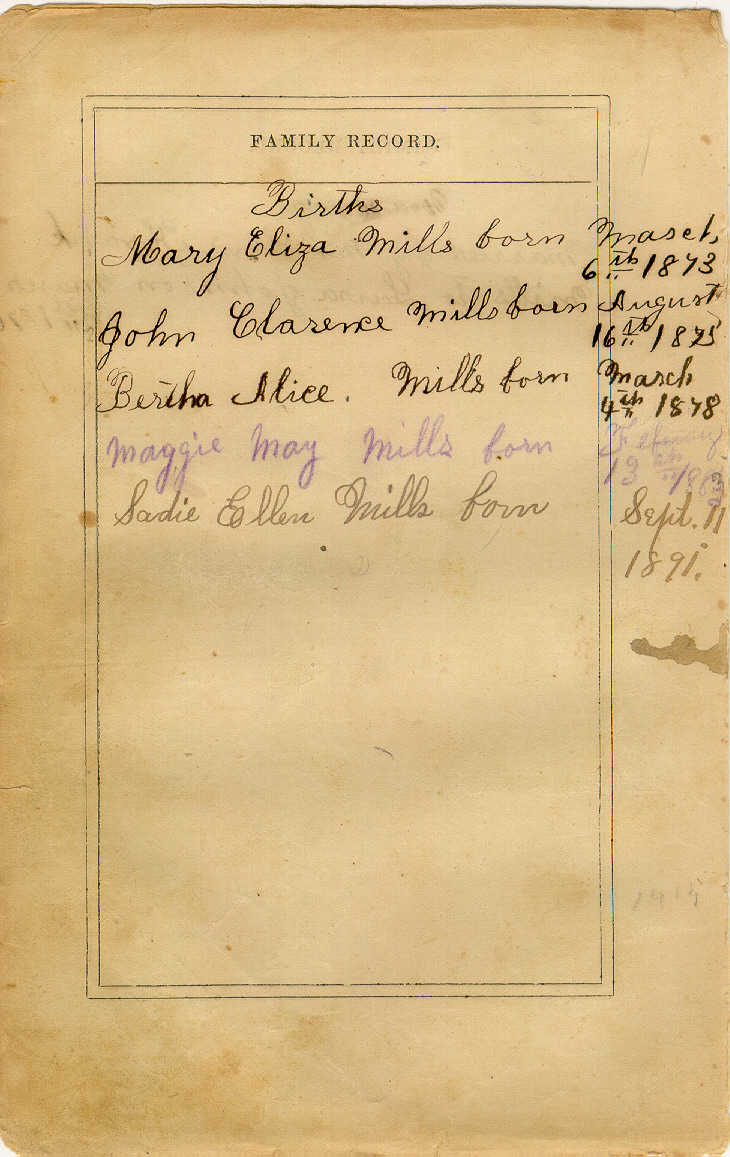 FAMILY RECORD.
Births
Mary Eliza Mills born March
6th 1873
John Clarence Mills born August
16th 1875
Bertha Alice. Mills born March
4th 1878
Maggie May Mills born
13th
Sadie Ellen Mills born Sept. 11
1891.